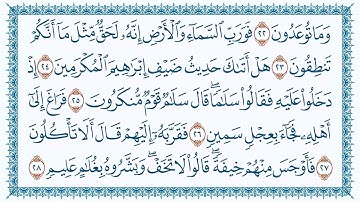 وَمَا تُوعَدُونَ ٢٢ فَوَرَبِّ ٱلسَّمَآءِ وَٱلْأَرْضِ إِنَّهُۥ لَحَقٌّ مِّثْلَ مَآ أَنَّكُمْ
تَنطِقُونَ ٢٣ هَلْ أَتَىٰكَ حَدِيثُ ضَيْفِ إِبْرَٰهِيمَ ٱلْمُكْرَمِينَ ٢٤ إِذْ
دَخَلُوا۟ عَلَيْهِ فَقَالُوا۟ سَلَـٰمًا ۖ قَالَ سَلَـٰمٌ قَوْمٌ مُّنكَرُونَ ٢٥ فَرَاغَ إِلَىٰٓ
أَهْلِهِۦ فَجَآءَ بِعِجْلٍ سَمِينٍ ٢٦ فَقَرَّبَهُۥٓ إِلَيْهِمْ قَالَ أَلَا تَأْكُلُونَ
٢٧ فَأَوْجَسَ مِنْهُمْ خِيفَةً ۖ قَالُوا۟ لَا تَخَفْ ۖ وَبَشَّرُوهُ بِغُلَـٰمٍ عَلِيمٍ ٢٨